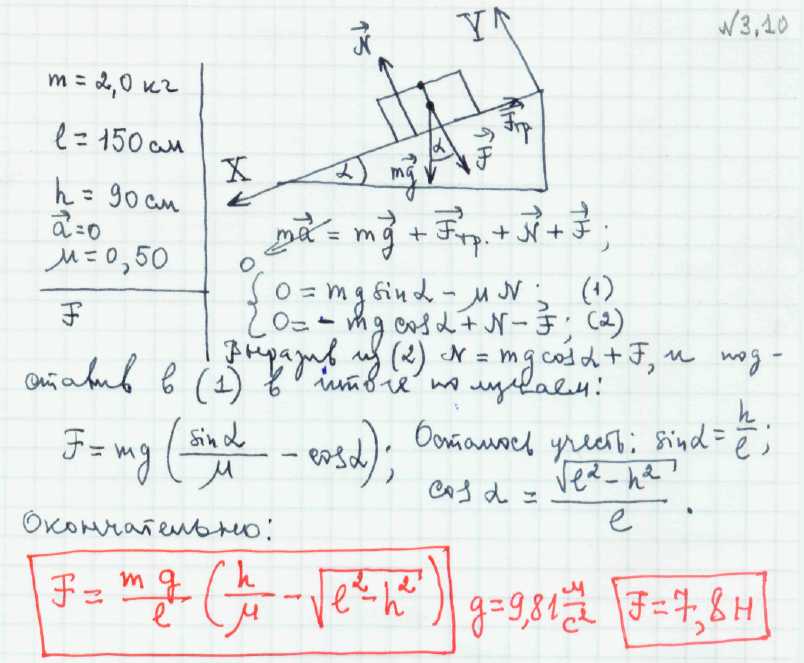 N3.10
Y
N
m = 2,0 кг
l = 150 см
h = 90 см
a = 0
μ = 0,50
F
Fтр
X
α
mg
α
F
ma = mg + Fтр. + N + F ;
0
0 = mg sinα - μN ; (1)
0 = - mg cosα + N - F ; (2)
Выразив из (2) N = mg cosα + F, и под-
ставив в (1) в итоге получаем:
F = mg ( sinα / μ - cosα ) ; Осталось учесть: sinα = h / l ;
cos α = √l² - h² / l .
Окончательно:
F = mg / l ( h / μ - √l² - h² ) g = 9,81 м/с² F = 7,8 Н